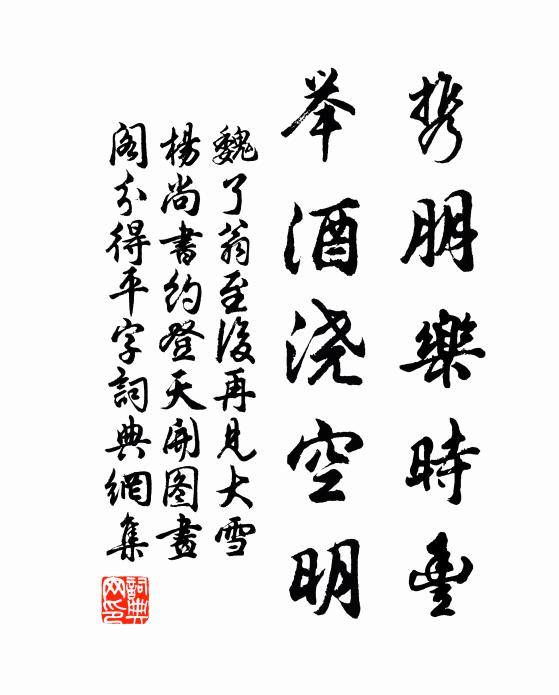 携朋樂時豊
举酒浇空明
魏了翁至後再見大雪
楊尚書約登天開图畫
阁分得平字詞典網集
詞典